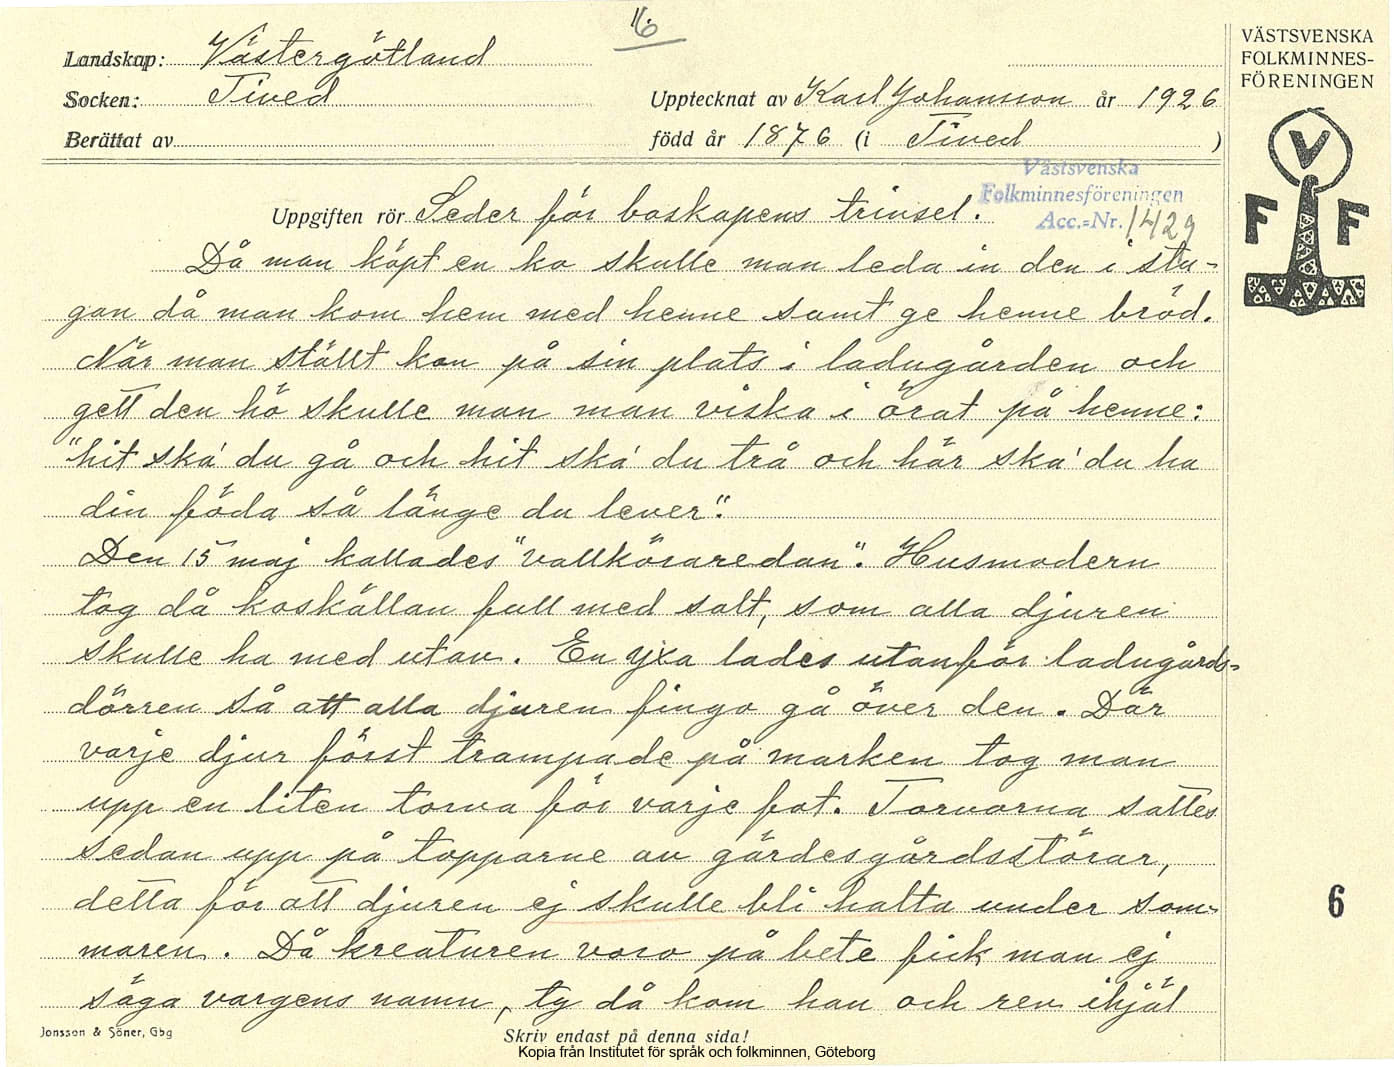 16.
Landskap: Västergötland
Socken: Tived
Berättat av
Upptecknat av Karl Johansson år 1926
född år 1876 (i Tived )
VÄSTSVENSKA
FOLKMINNES-
FÖRENINGEN
V
F F
Västsvenska
Folkminnesföreningen
Acc.-Nr. 1429
Uppgiften rör Seder för boskapens trinsel.
Då man köpt en ko skulle man leda in den i stu-
gan då man kom hem med henne samt ge henne bröd.
När man ställt kon på sin plats i ladugården och
gett den hö skulle man man viska i örat på henne:
"hit ska' du gå och hit ska' du trå och här ska' du ha
din föda så länge du lever".
Den 15 maj kallades "vallköraredan". Husmodern
tog då koskällan full med salt, som alla djuren
skulle ha med utav. En yxa lades utanför ladugårds-
dörren så att alla djuren fingo gå över den. Där
varje djur först trampade på marken tog man
upp en liten torva för varje fot. Torvorna sattes
sedan upp på topparne av gärdesgårdsstörar,
detta för att djuren ej skulle bli halta under som-
maren. Då kreaturen voro på bete fick man ej
säga vargens namn, ty då kom han och rev ihjäl
6
Jonsson & Söner, Gbg
Skriv endast på denna sida!
Kopia från Institutet för språk och folkminnen, Göteborg